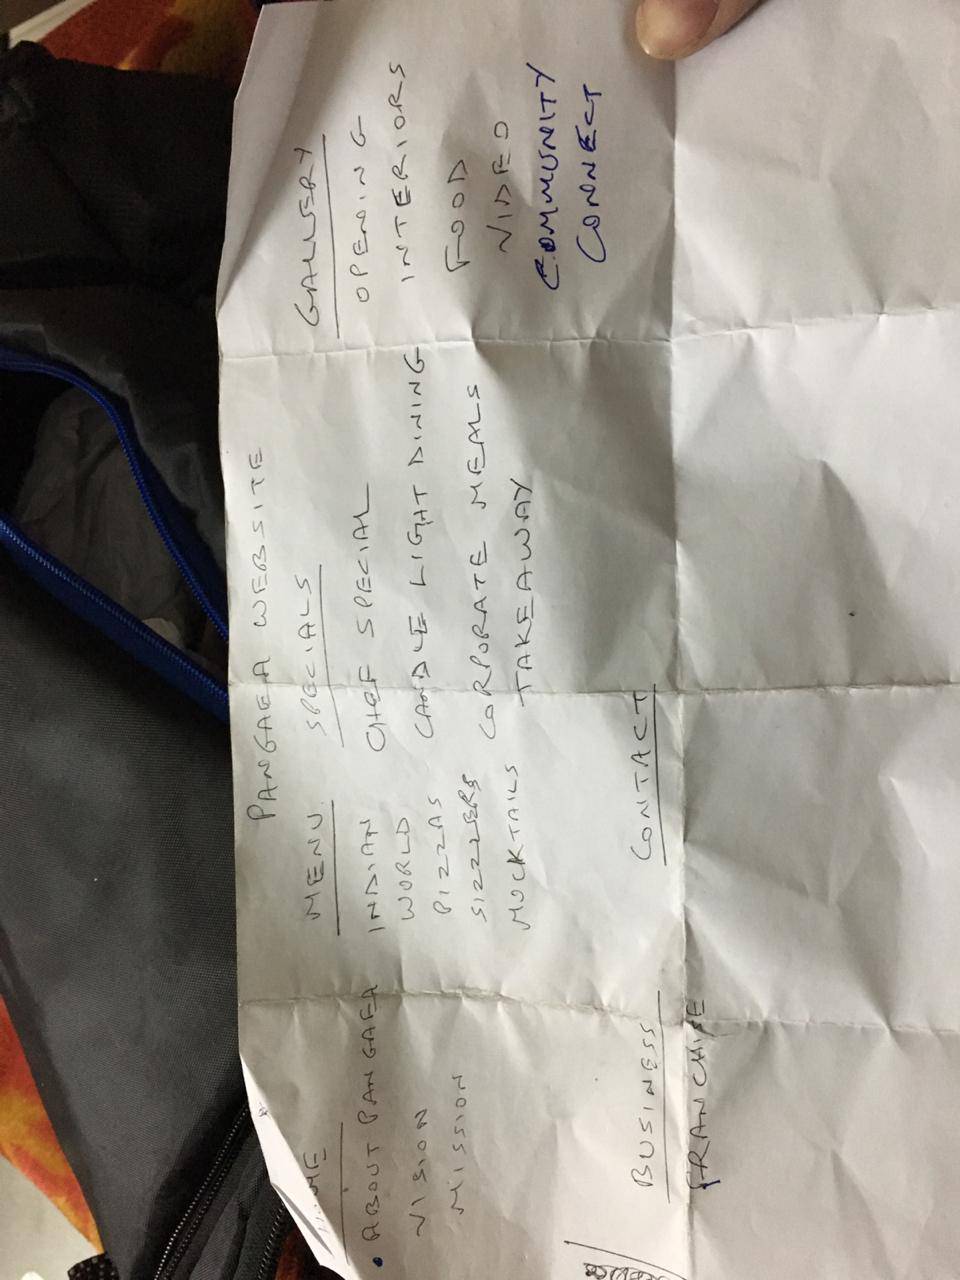 PANGAEA WEBSITE
HOME
• ABOUT PANGAEA
VISION
MISSION
MENU
INDIAN
WORLD
PIZZAS
SIZZLERS
MOCKTAILS
SPECIALS
CHEF SPECIAL
CANDLE LIGHT DINING
CORPORATE MEALS
TAKEAWAY
GALLERY
OPENING
INTERIORS
FOOD
VIDEO
COMMUNITY
CONNECT
BUSINESS
FRANCHISE
CONTACT